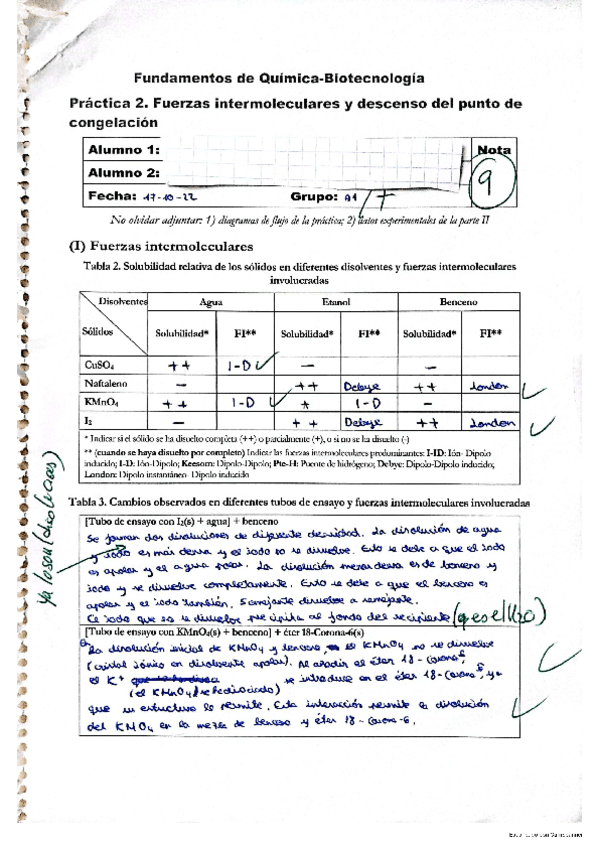 Fundamentos de Química-Biotecnología
Práctica 2. Fuerzas intermoleculares y descenso del punto de
congelación
Alumno 1:
Nota
Alumno 2:
9
Fecha: 17-10-22 Grupo: A1
No olvidar adjuntar: 1) diagramas de flujo de la práctica; 2) datos experimentales de la parte II
(I) Fuerzas intermoleculares
Tabla 2. Solubilidad relativa de los sólidos en diferentes disolventes y fuerzas intermoleculares
involucradas
Disolventes Agua Etanol Benceno
Sólidos Solubilidad* FI** Solubilidad* FI** Solubilidad* FI**
CuSO4 ++ I-D - -
Naftaleno - ++ Debye ++ London
KMnO4 ++ I-D + I-D -
I2 - ++ Debye ++ London
* Indicar si el sólido se ha disuelto completa (++) o parcialmente (+), o si no se ha disuelto (-)
** (cuando se haya disuelto por completo) Indicar las fuerzas intermoleculares predominantes: I-ID: Ión- Dipolo
inducido; I-D: Ión-Dipolo; Keesom: Dipolo-Dipolo; Pte-H: Puente de hidrógeno; Debye: Dipolo-Dipolo inducido;
London: Dipolo instantáneo- Dipolo inducido
Tabla 3. Cambios observados en diferentes tubos de ensayo y fuerzas intermoleculares involucradas
[Tubo de ensayo con I2(s) + agua] + benceno
Se forman dos disoluciones de diferente densidad. La disolución de agua
y iodo es más densa y el iodo no se disuelve. Esto se debe a que el iodo
es apolar y el agua polar. La disolución menos densa es de benceno y
iodo y se disuelve completamente. Esto se debe a que el benceno es
apolar y el iodo también. Semejante disuelve a semejante.
El iodo que no se disuelve precipita al fondo del recipiente
[Tubo de ensayo con KMnO4(s) + benceno] + éter 18-Corona-6(s)
La disolución inicial de KMnO4 y benceno el KMnO4 no se disuelve
(cristal iónico en disolvente apolar). Al añadir el éter 18-corona-6,
el K+ se introduce en el éter 18-corona-6, ya
(el KMnO4 se
que su estructura lo permite. Esta interacción permite la disolución
del KMnO4 en la mezcla de benceno y éter 18-corona-6.